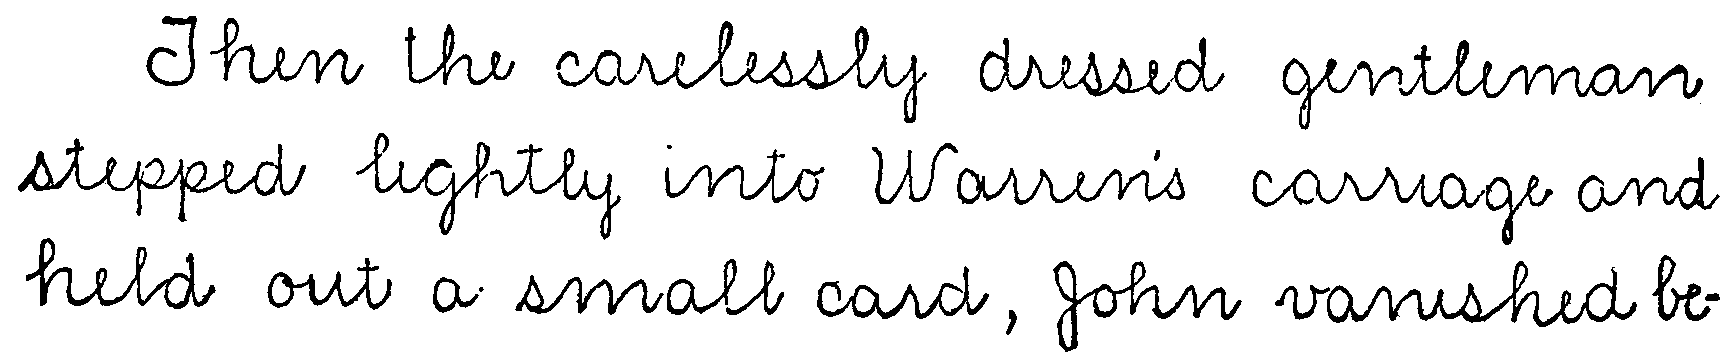 Then the carelessly dressed gentleman
stepped lightly into Warren's carriage and
held out a small card, John vanished be-